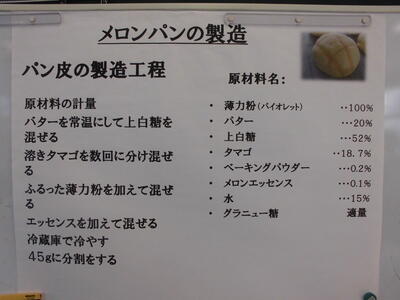 メロンパンの製造
パン皮の製造工程
原材料の計量
バターを常温にして上白糖を
混ぜる
溶きタマゴを数回に分け混ぜ
る
ふるった薄力粉を加えて混ぜ
る
エッセンスを加えて混ぜる
冷蔵庫で冷やす
45gに分割をする
原材料名:
・ 薄力粉(バイオレット) ‥100%
・ バター ‥‥20%
・ 上白糖 ‥‥52%
・ タマゴ ‥‥18.7%
・ ベーキングパウダー ‥‥0.2%
・ メロンエッセンス ‥‥0.1%
・ 水 ‥‥15%
・ グラニュー糖 適量